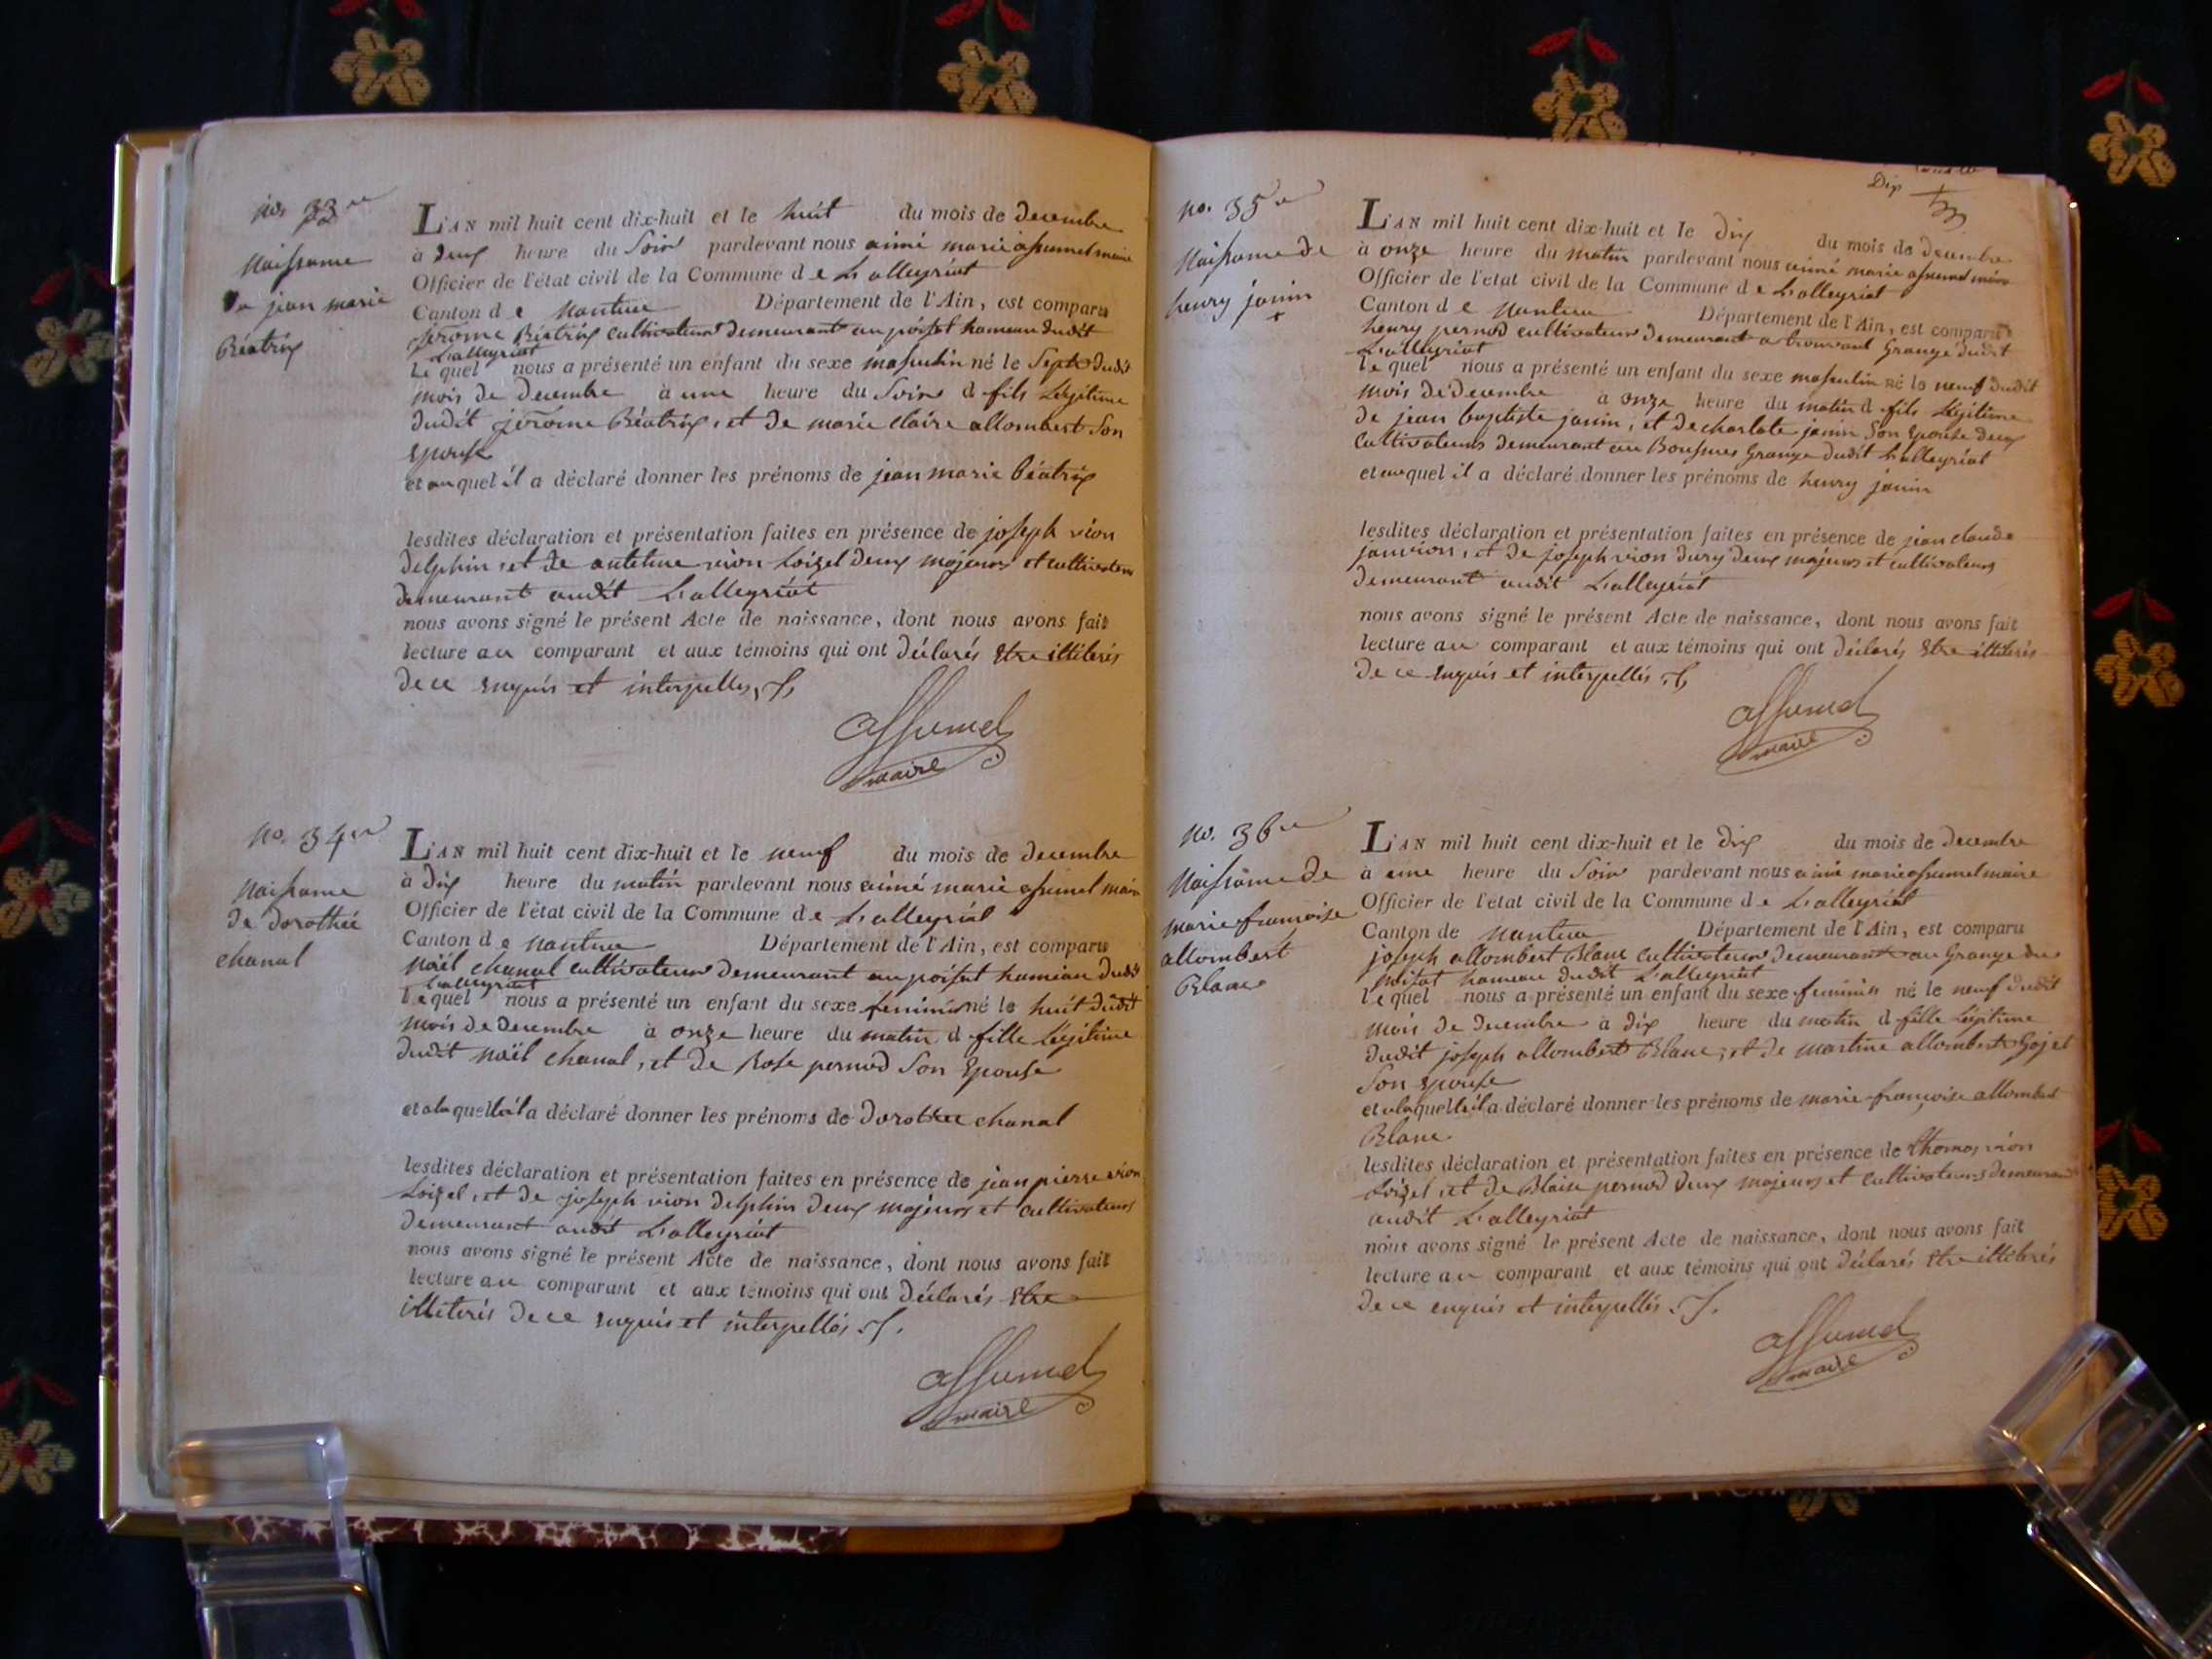 no. 33
Naissance
de jean marie
Béatrix
L'AN mil huit cent dix-huit et le huit du mois de decembre
à deux heure du Soir pardevant nous aimé marie assumel maire
Officier de l'état civil de la Commune de L'alleyriat
Canton de Nantua Département de l'Ain, est comparu
jérome Béatrix cultivateur demeurant au poisat hameau dudit
L'alleyriat
Lequel nous a présenté un enfant du sexe masculin né le Sept dudit
mois de Decembre à une heure du Soir d fils Légitime
dudit jérome Béatrix, et de marie claire allombert Son
Epouse
et auquel il a déclaré donner les prénoms de jean marie béatrix
lesdites déclaration et présentation faites en présence de joseph vion
delphin, et de antelme vion Loizel deux majeurs et cultivateurs
demeurant audit L'alleyriat
nous avons signé le présent Acte de naissance, dont nous avons fait
lecture au comparant et aux témoins qui ont déclarés Etre illiterés
de ce enquis et interpellés
assumel
maire
no. 34
Naissance
de dorothée
chanal
L'AN mil huit cent dix-huit et le neuf du mois de decembre
à dix heure du matin pardevant nous aimé marie assumel maire
Officier de l'état civil de la Commune de L'alleyriat
Canton de Nantua Département de l'Ain, est comparu
Noël chanal cultivateur demeurant au poisat hameau dudit
L'alleyriat
lequel nous a présenté un enfant du sexe feminin né le huit dudit
mois de decembre à onze heure du matin d fille Légitime
dudit Noël chanal, et de Rose pernod Son Epouse
et a laquelle il a déclaré donner les prénoms de dorothée chanal
lesdites déclaration et présentation faites en présence de jean pierre vion
Loizel, et de joseph vion delphin deux majeurs et cultivateurs
demeurant audit L'alleyriat
nous avons signé le présent Acte de naissance, dont nous avons fait
lecture au comparant et aux témoins qui ont déclarés Etre
illiterés de ce enquis et interpellés
assumel
maire
Dix
no. 35
Naissance de
henry janin
L'AN mil huit cent dix-huit et le dix du mois de decembre
à onze heure du matin pardevant nous aimé marie assumel maire
Officier de l'etat civil de la Commune de L'alleyriat
Canton de Nantua Département de l'Ain, est comparu
henry pernod cultivateur demeurant a Grange dudit
L'alleyriat
lequel nous a présenté un enfant du sexe masculin né le neuf dudit
mois de Decembre à onze heure du matin d fils Légitime
de jean baptiste janin, et de charlote janin Son Epouse deux
cultivateurs demeurant au Grange dudit L'alleyriat
et auquel il a déclaré donner les prénoms de henry janin
lesdites déclaration et présentation faites en présence de jean claude
janvion, et de joseph vion dury deux majeurs et cultivateurs
demeurant audit L'alleyriat
nous avons signé le présent Acte de naissance, dont nous avons fait
lecture au comparant et aux témoins qui ont déclarés Etre illiterés
de ce enquis et interpellés
assumel
maire
no. 36
Naissance de
marie françoise
allombert
Blanc
L'AN mil huit cent dix-huit et le dix du mois de decembre
à une heure du Soir pardevant nous aimé marie assumel maire
Officier de l'etat civil de la Commune de L'alleyriat
Canton de Nantua Département de l'Ain, est comparu
joseph allombert Blanc cultivateur demeurant au Grange du
poisat hameau dudit L'alleyriat
lequel nous a présenté un enfant du sexe feminin né le neuf dudit
mois de decembre à dix heure du matin d fille Légitime
dudit joseph allombert Blanc, et de martine allombert Gojet
Son Epouse
et a laquelle il a déclaré donner les prénoms de marie françoise allombert
Blanc
lesdites déclaration et présentation faites en présence de thomas vion
Loizel, et de Blaise pernod deux majeurs et cultivateurs demeurant
audit L'alleyriat
nous avons signé le présent Acte de naissance, dont nous avons fait
lecture au comparant et aux témoins qui ont déclarés Etre illiterés
de ce enquis et interpellés
assumel
maire